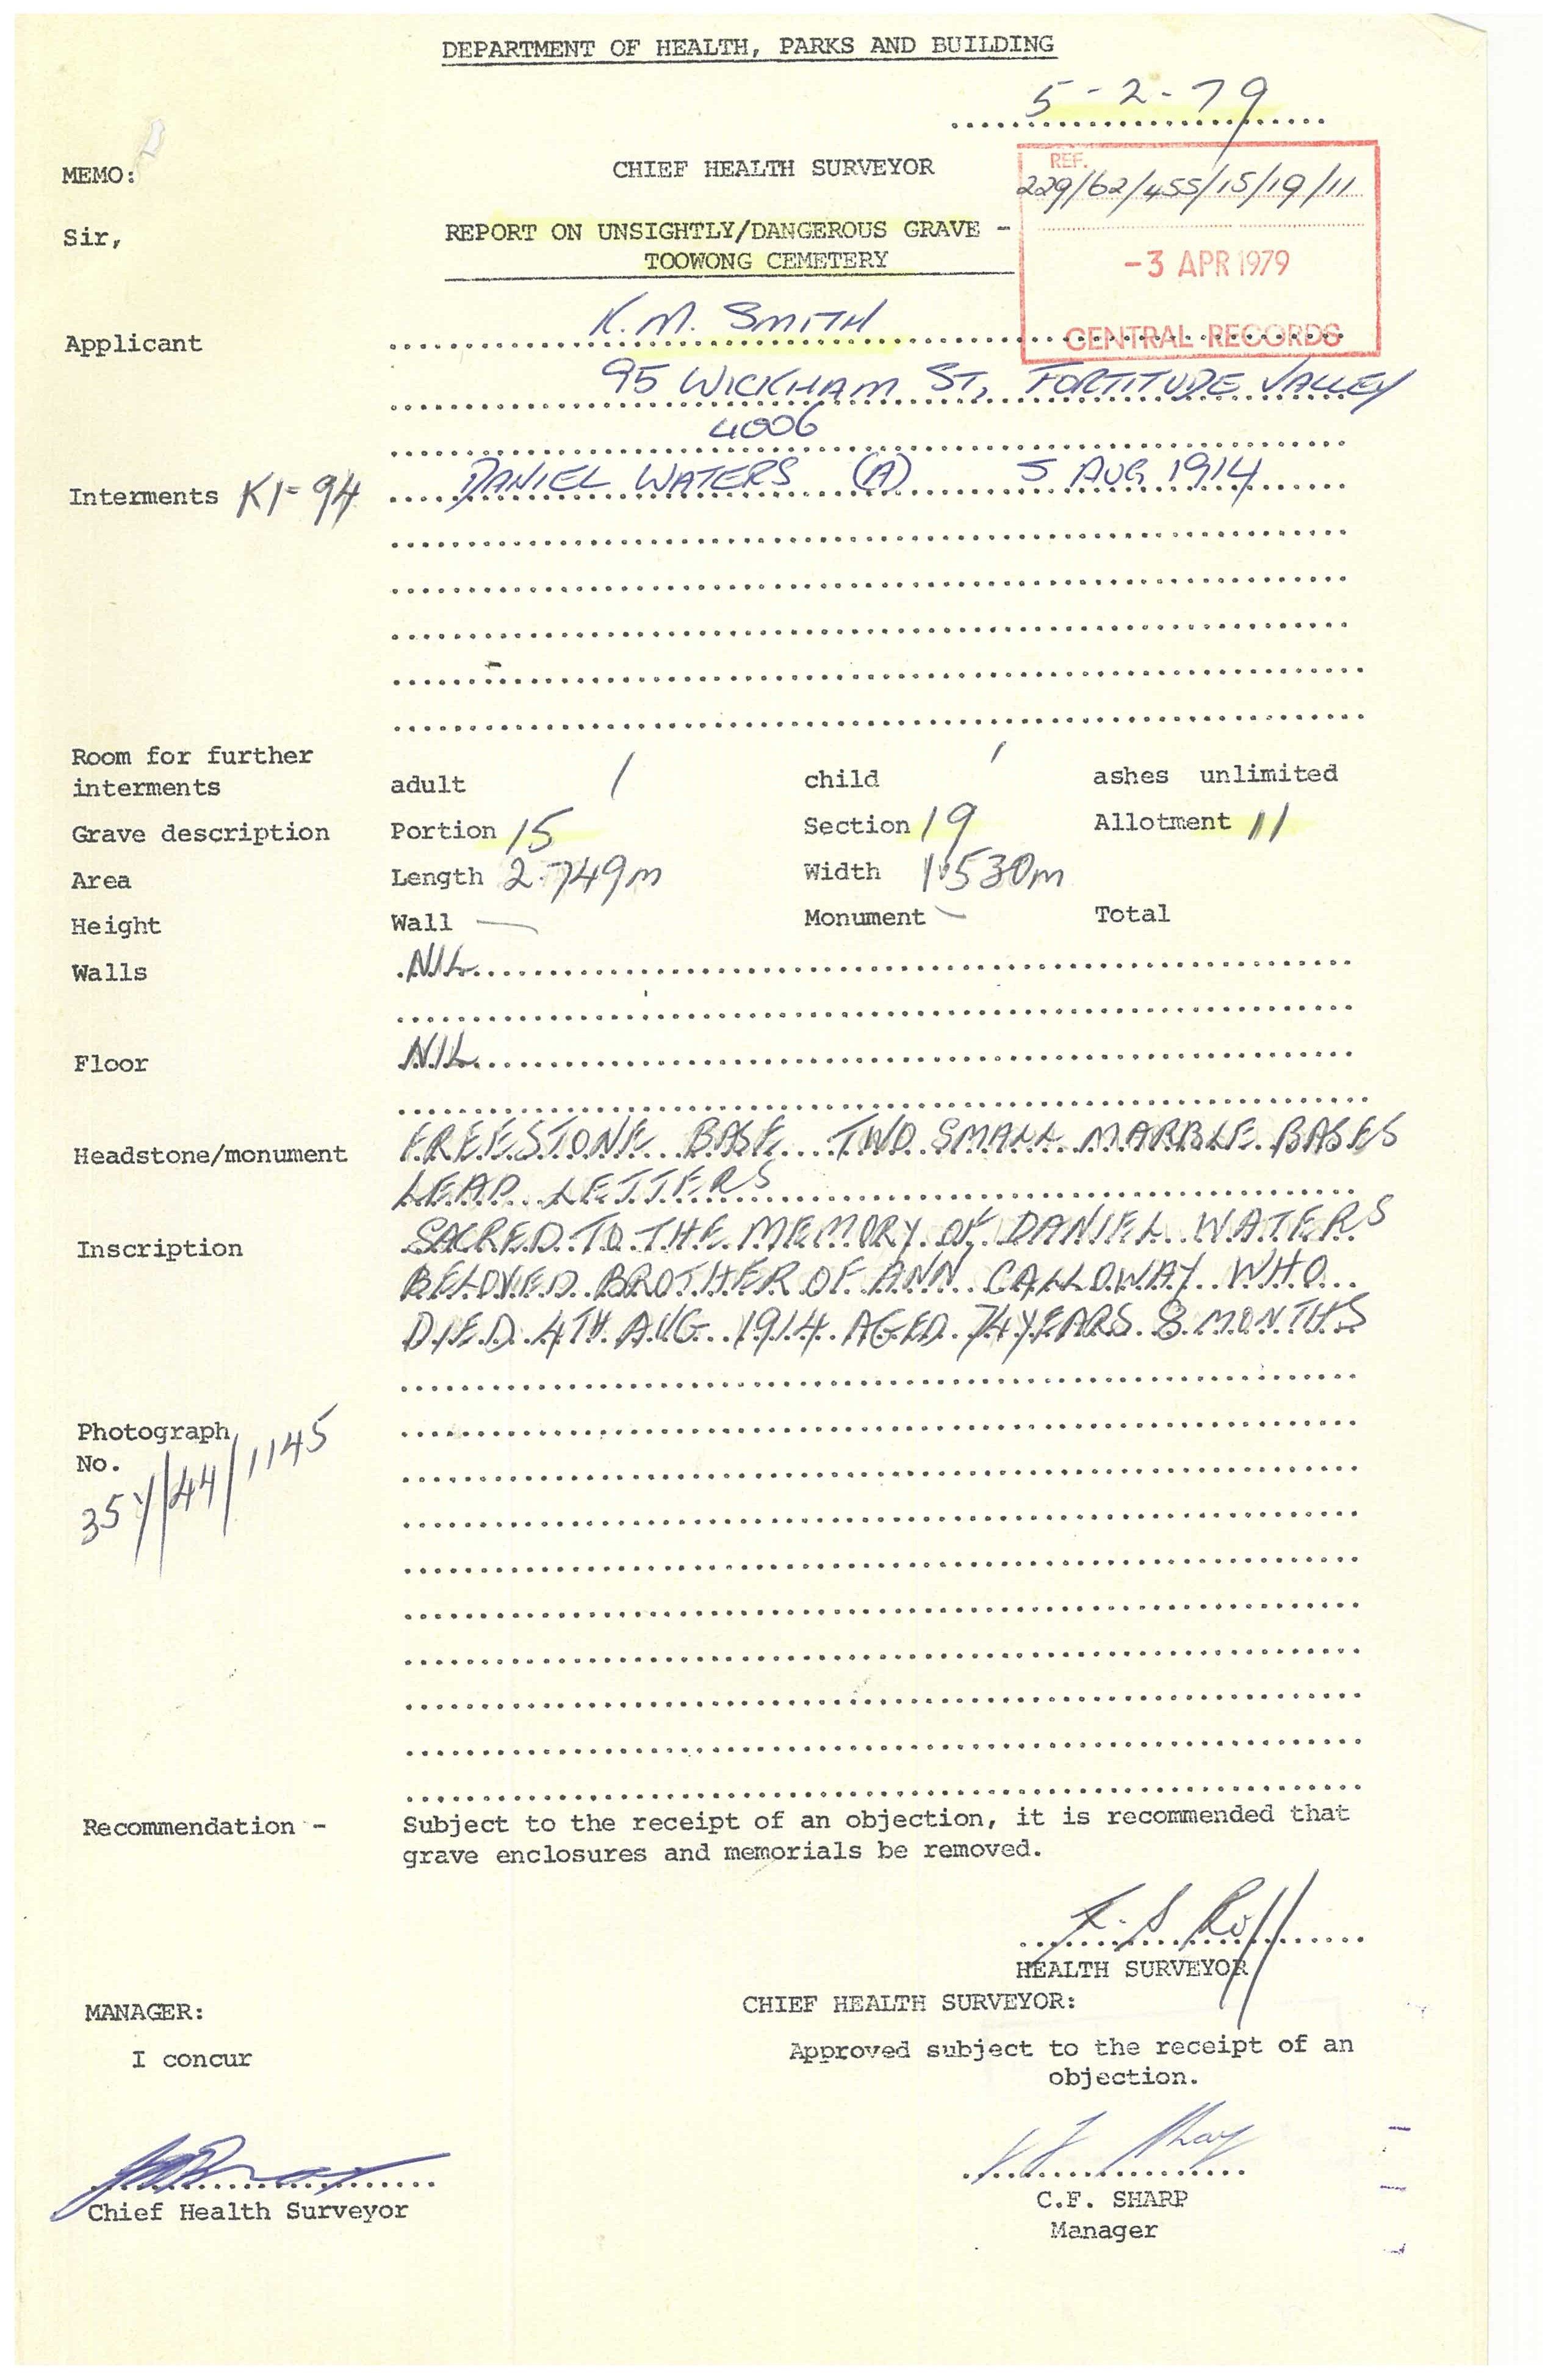 DEPARTMENT OF HEALTH, PARKS AND BUILDING
5-2-79
MEMO: CHIEF HEALTH SURVEYOR
REF.
229/62/455/15/19/11
Sir, REPORT ON UNSIGHTLY/DANGEROUS GRAVE -
TOOWONG CEMETERY
-3 APR 1979
CENTRAL RECORDS
Applicant K.M. SMITH
95 WICKHAM ST, FORTITUDE VALLEY
4006
Interments K1-94 DANIEL WATERS (A) 5 AUG 1914
Room for further
interments adult / child / ashes unlimited
Grave description Portion 15 Section 19 Allotment 11
Area Length 2.749m Width 1.530m
Height Wall — Monument — Total
Walls NIL
Floor NIL
Headstone/monument FREESTONE BASE TWO SMALL MARBLE BASES
LEAD LETTERS
Inscription SACRED TO THE MEMORY OF DANIEL WATERS
BELOVED BROTHER OF ANN CALLOWAY WHO
DIED 4TH AUG 1914 AGED 74 YEARS 8 MONTHS
Photograph
No.
/44/1145
Recommendation - Subject to the receipt of an objection, it is recommended that
grave enclosures and memorials be removed.
HEALTH SURVEYOR
MANAGER: CHIEF HEALTH SURVEYOR:
I concur Approved subject to the receipt of an
objection.
Chief Health Surveyor C.F. SHARP
Manager